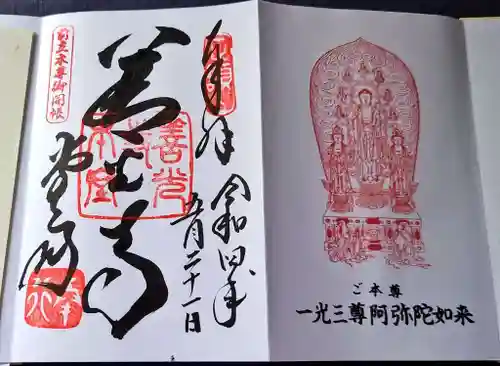 奉拝
令和四年
五月二十一日
善光寺
堂司
前立本尊御開帳
善光
本堂
ご本尊
一光三尊阿弥陀如来